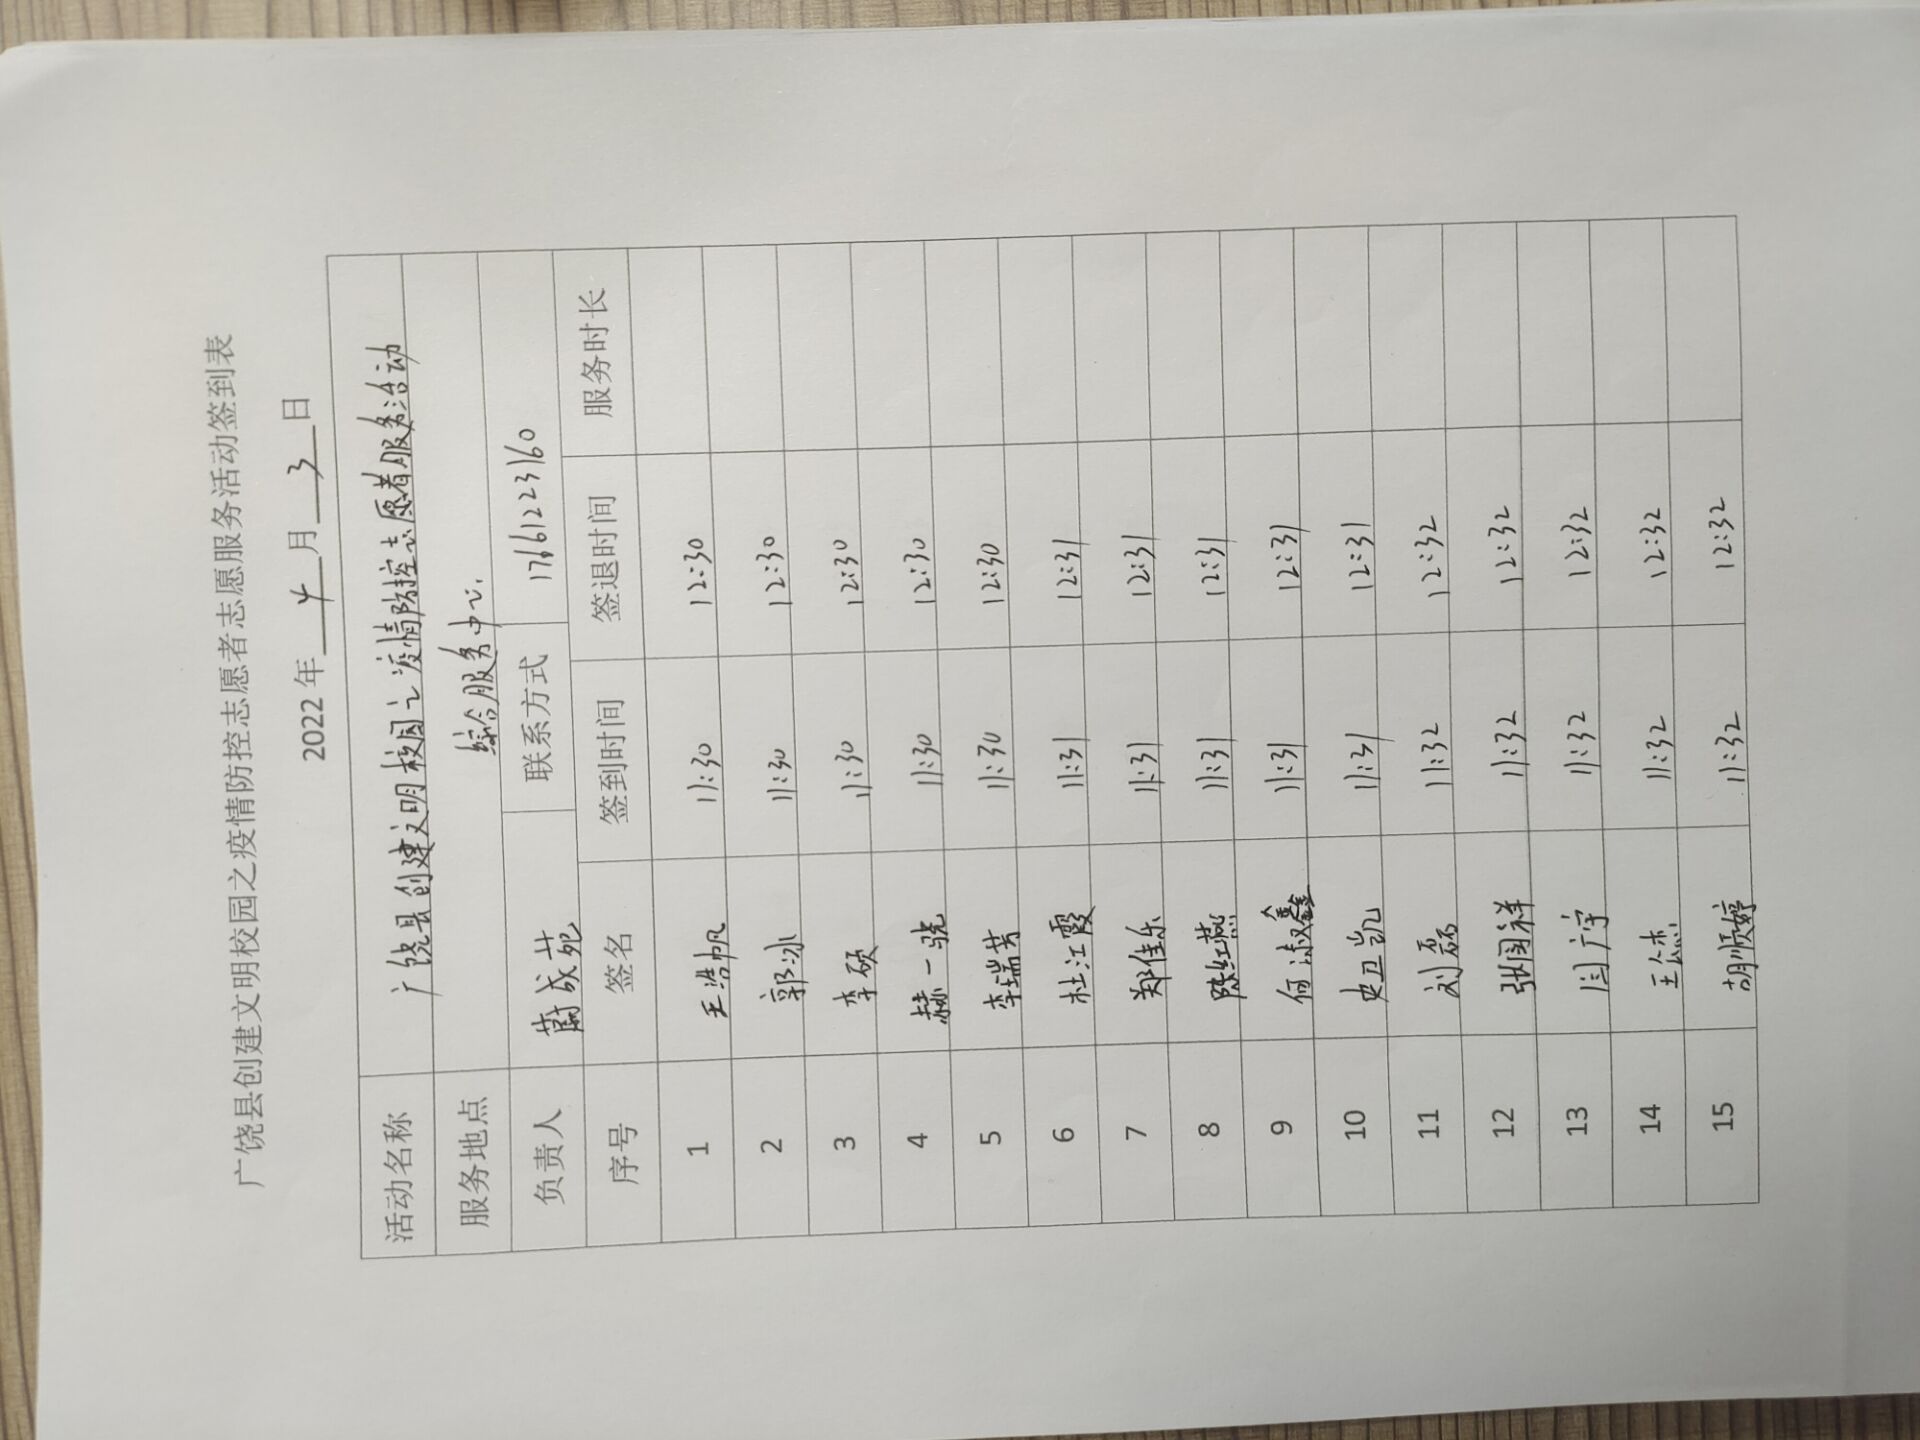 广饶县创建文明校园之疫情防控志愿者志愿服务活动签到表
2022年 4 月 3 日
活动名称 广饶县创建文明校园之疫情防控志愿者服务活动
服务地点 综合服务中心.
负责人 蔚成苑 联系方式 17661223160
序号 签名 签到时间 签退时间 服务时长
1 王浩帆 11:30 12:30
2 郭冰 11:30 12:30
3 李硕 11:30 12:30
4 赫一骁 11:30 12:30
5 李瑞芳 11:30 12:30
6 杜江霞 11:31 12:31
7 郑佳乐 11:31 12:31
8 陈红燕 11:31 12:31
9 何淑鑫 11:31 12:31
10 史卫凯 11:31 12:31
11 刘磊 11:32 12:32
12 张国祥 11:32 12:32
13 闫广宇 11:32 12:32
14 11:32 12:32
15 胡顺婷 11:32 12:32